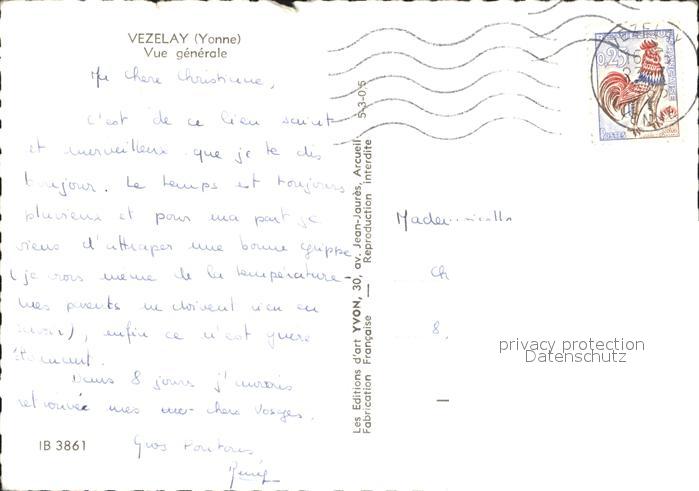 VEZELAY (Yonne)
Vue générale
Ma Chere Christienne,
c'est de ce lieu saint
et merveilleux que je te dis
bonjour. Le temps est toujours
pluvieux et pour ma part je
viens d'attraper une bonne grippe
(je crois meme de la température -
mes parents ne doivent rien en
savoir), enfin ce n'est guere
étonnant.
Dans 8 jours j'aurais
retrouvée mes cheres Vosges.
Gros
IB 3861
Les Editions d'art YVON, 30, av. Jean-Jaurès, Arcueil 5-3-0,5
Fabrication Française — Reproduction interdite
0,25
POSTES
Mademoiselle
Ch
8,
privacy protection
Datenschutz